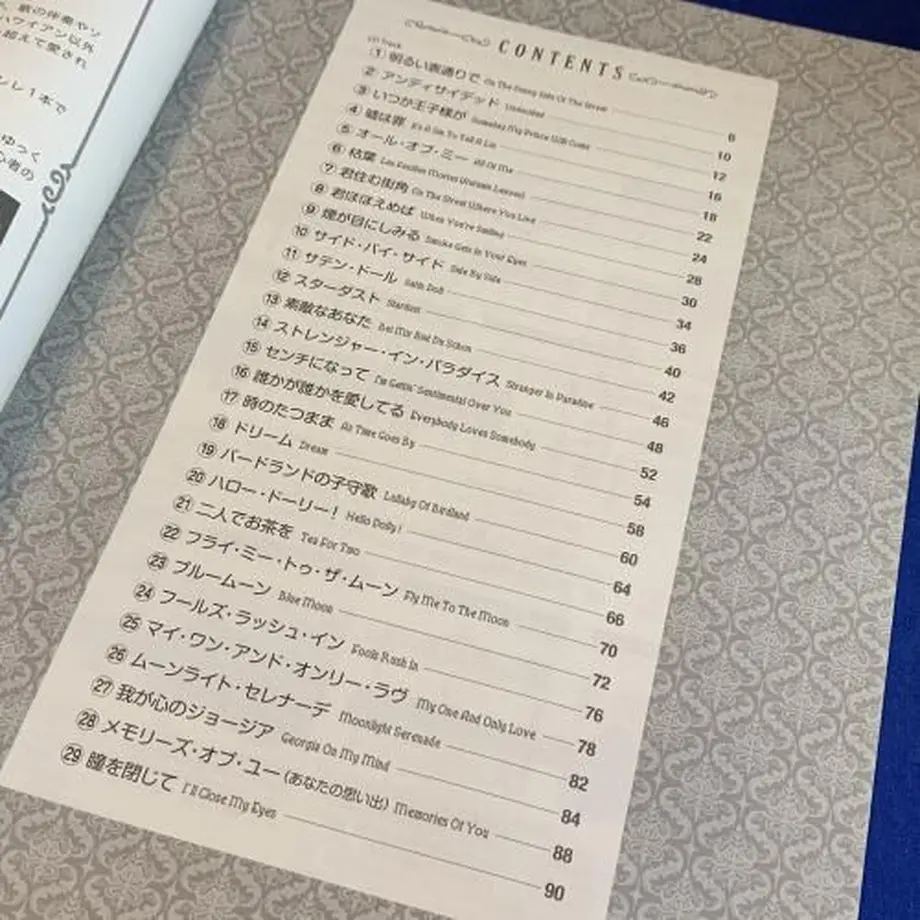 歌の伴奏やソ
ハワイアン以外
超えて愛され
レ1本で
ゆっく
心者の
CONTENTS
CD Track
① 明るい表通りで On The Sunny Side Of The Street 6
② アンディサイデッド Undecided 10
③ いつか王子様が Someday My Prince Will Come 12
④ 嘘は罪 It's A Sin To Tell A Lie 16
⑤ オール・オブ・ミー All Of Me 18
⑥ 枯葉 Les Feuilles Mortes (Autumn Leaves) 22
⑦ 君住む街角 On The Street Where You Live 24
⑧ 君ほほえめば When You're Smiling 28
⑨ 煙が目にしみる Smoke Gets In Your Eyes 30
⑩ サイド・バイ・サイド Side By Side 34
⑪ サテン・ドール Satin Doll 36
⑫ スターダスト Stardust 40
⑬ 素敵なあなた Bei Mir Bist Du Schon 42
⑭ ストレンジャー・イン・パラダイス Stranger In Paradise 46
⑮ センチになって I'm Gettin' Sentimental Over You 48
⑯ 誰かが誰かを愛してる Everybody Loves Somebody 52
⑰ 時のたつまま As Time Goes By 54
⑱ ドリーム Dream 58
⑲ バードランドの子守歌 Lullaby Of Birdland 60
⑳ ハロー・ドーリー! Hello Dolly! 64
㉑ 二人でお茶を Tea For Two 66
㉒ フライ・ミー・トゥ・ザ・ムーン Fly Me To The Moon 70
㉓ ブルームーン Blue Moon 72
㉔ フールズ・ラッシュ・イン Fools Rush In 76
㉕ マイ・ワン・アンド・オンリー・ラヴ My One And Only Love 78
㉖ ムーンライト・セレナーデ Moonlight Serenade 82
㉗ 我が心のジョージア Georgia On My Mind 84
㉘ メモリーズ・オブ・ユー(あなたの思い出) Memories Of You 88
㉙ 瞳を閉じて I'll Close My Eyes 90